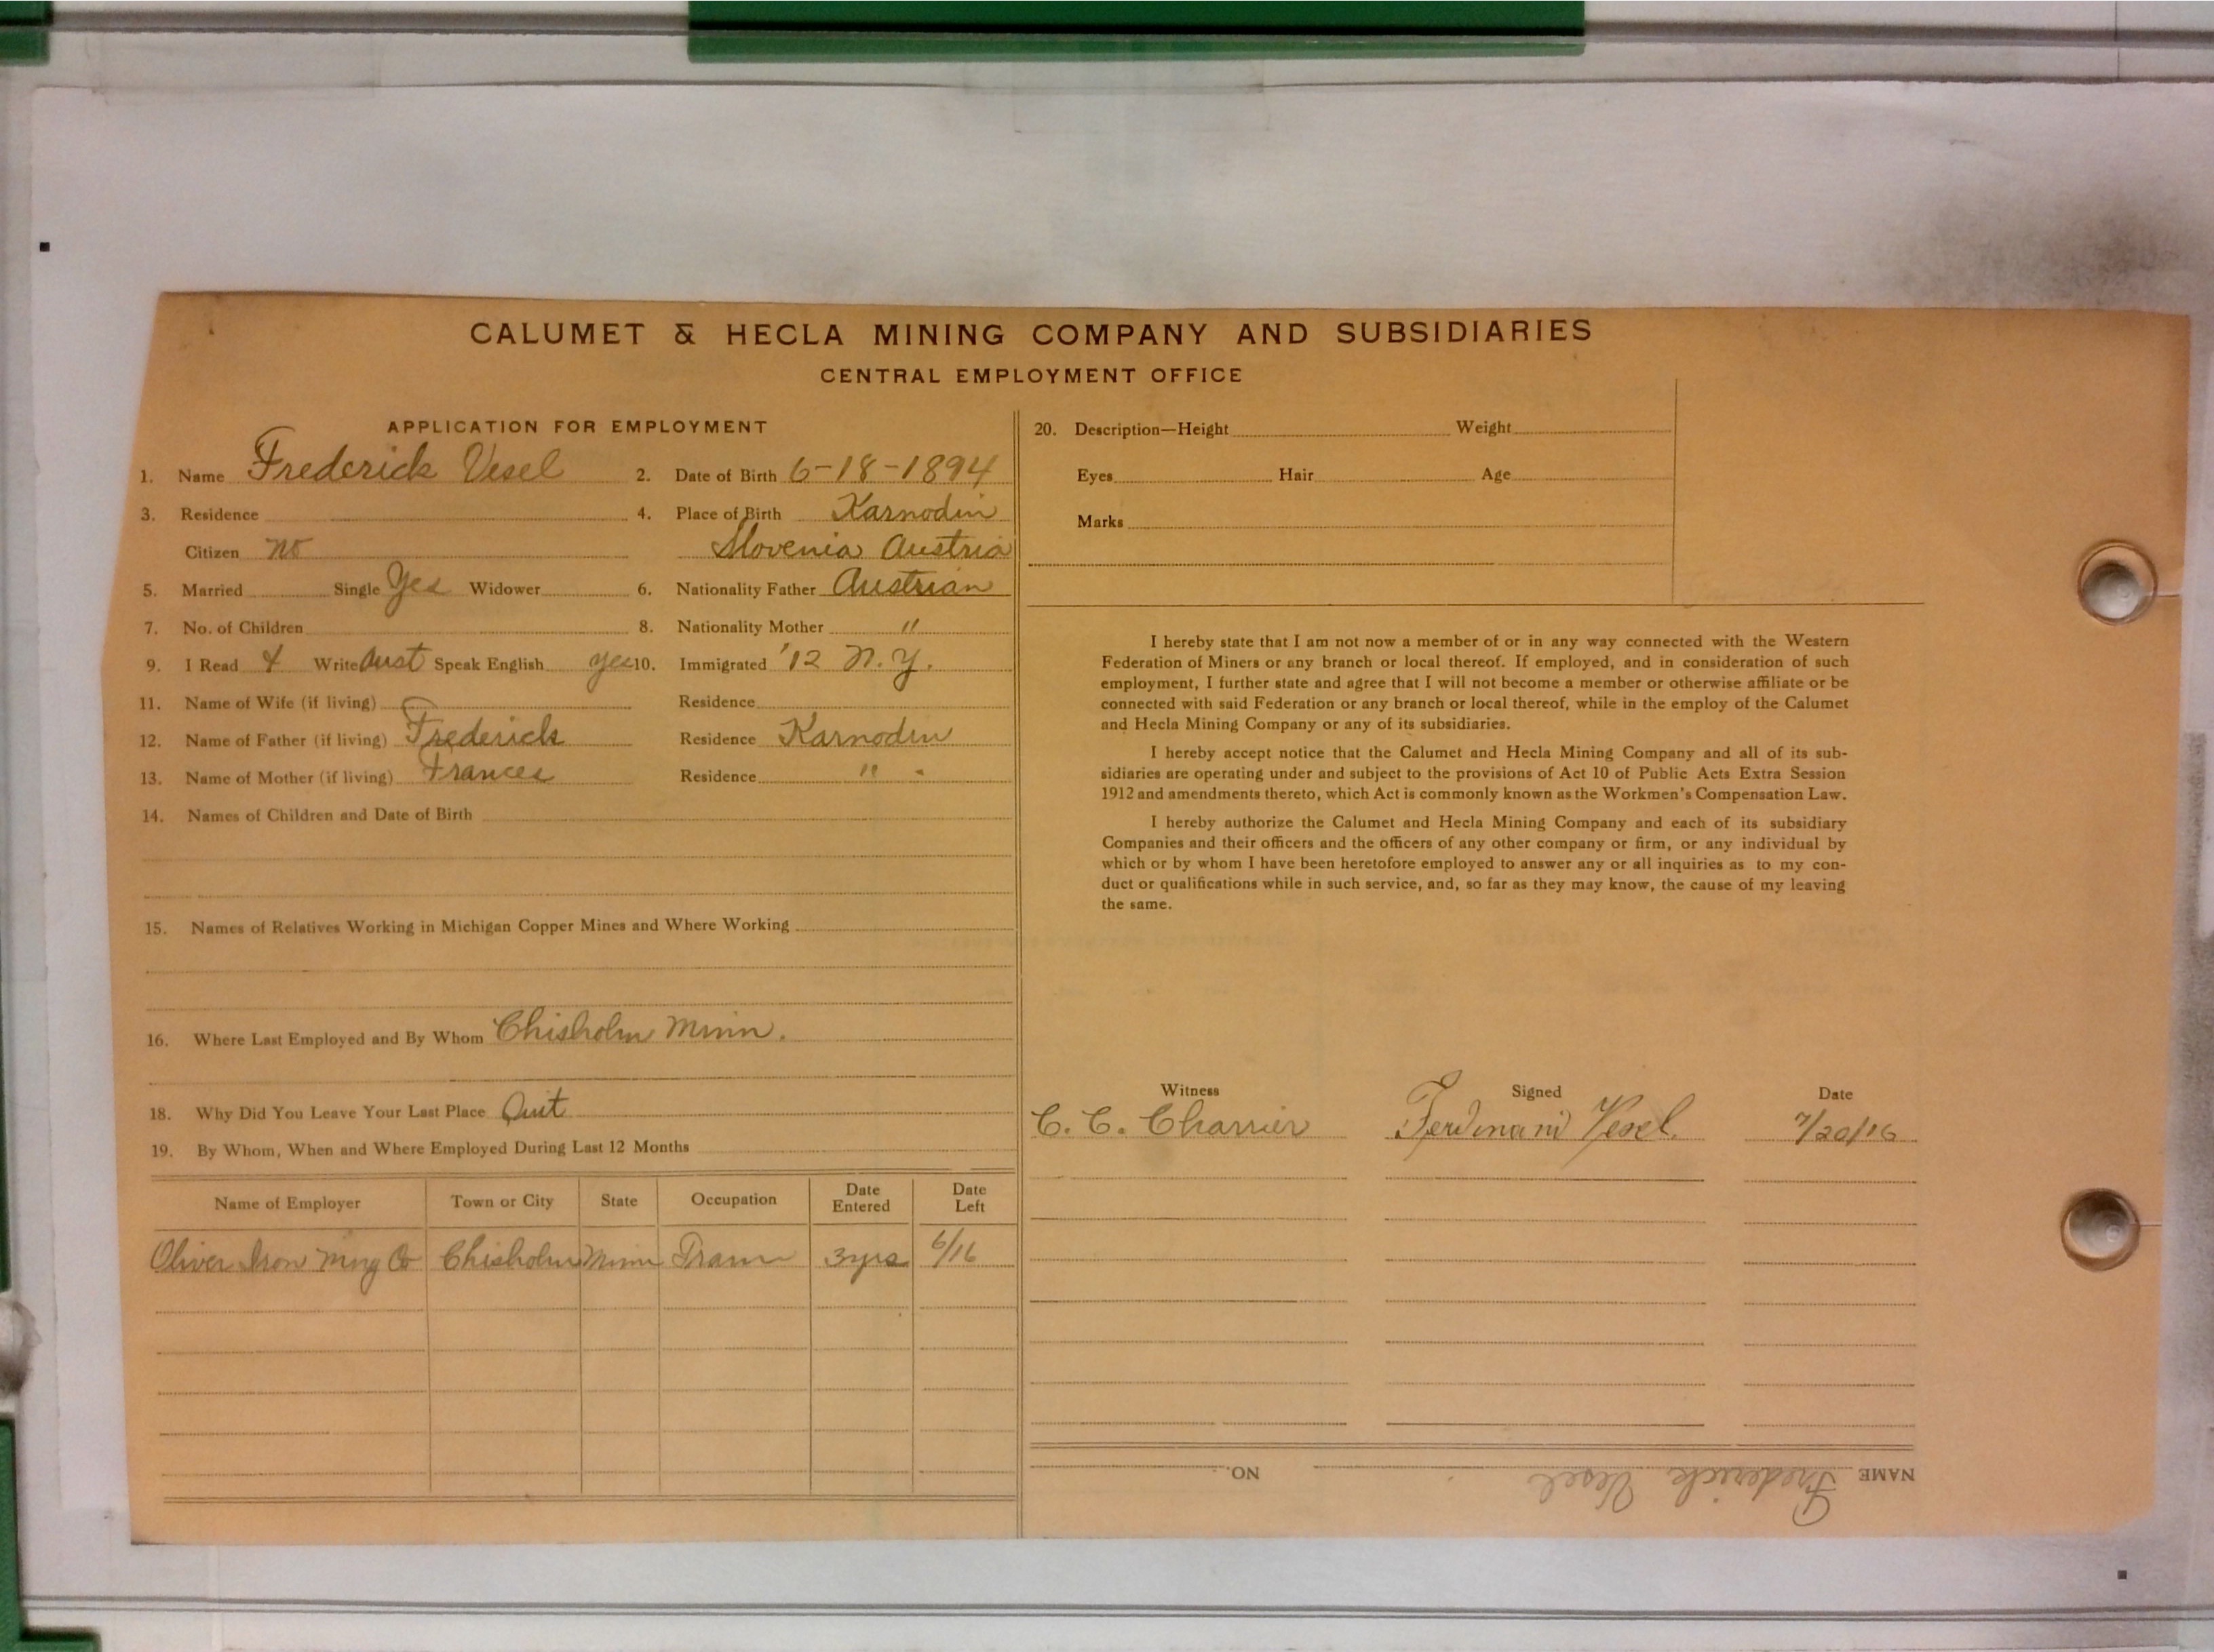 CALUMET & HECLA MINING COMPANY AND SUBSIDIARIES
CENTRAL EMPLOYMENT OFFICE
APPLICATION FOR EMPLOYMENT
1. Name Frederick Vesel 2. Date of Birth 6-18-1894
3. Residence 4. Place of Birth Karnodin
Citizen no Slovenia Austria
5. Married Single Yes Widower 6. Nationality Father Austrian
7. No. of Children 8. Nationality Mother "
9. I Read & Write Aust Speak English yes 10. Immigrated '12 N.Y.
11. Name of Wife (if living) Residence
12. Name of Father (if living) Frederick Residence Karnodin
13. Name of Mother (if living) Frances Residence "
14. Names of Children and Date of Birth
15. Names of Relatives Working in Michigan Copper Mines and Where Working
16. Where Last Employed and By Whom Chisholm Minn.
18. Why Did You Leave Your Last Place Quit
19. By Whom, When and Where Employed During Last 12 Months
Name of Employer Town or City State Occupation Date Entered Date Left
Oliver Iron Mng Co Chisholm Minn Tram 3yrs 6/16
20. Description—Height Weight
Eyes Hair Age
Marks
I hereby state that I am not now a member of or in any way connected with the Western
Federation of Miners or any branch or local thereof. If employed, and in consideration of such
employment, I further state and agree that I will not become a member or otherwise affiliate or be
connected with said Federation or any branch or local thereof, while in the employ of the Calumet
and Hecla Mining Company or any of its subsidiaries.
I hereby accept notice that the Calumet and Hecla Mining Company and all of its sub-
sidiaries are operating under and subject to the provisions of Act 10 of Public Acts Extra Session
1912 and amendments thereto, which Act is commonly known as the Workmen's Compensation Law.
I hereby authorize the Calumet and Hecla Mining Company and each of its subsidiary
Companies and their officers and the officers of any other company or firm, or any individual by
which or by whom I have been heretofore employed to answer any or all inquiries as to my con-
duct or qualifications while in such service, and, so far as they may know, the cause of my leaving
the same.
Witness Signed Date
C. C. Charrier Ferdinand Vesel 7/20/16
NAME Frederick Vesel NO.